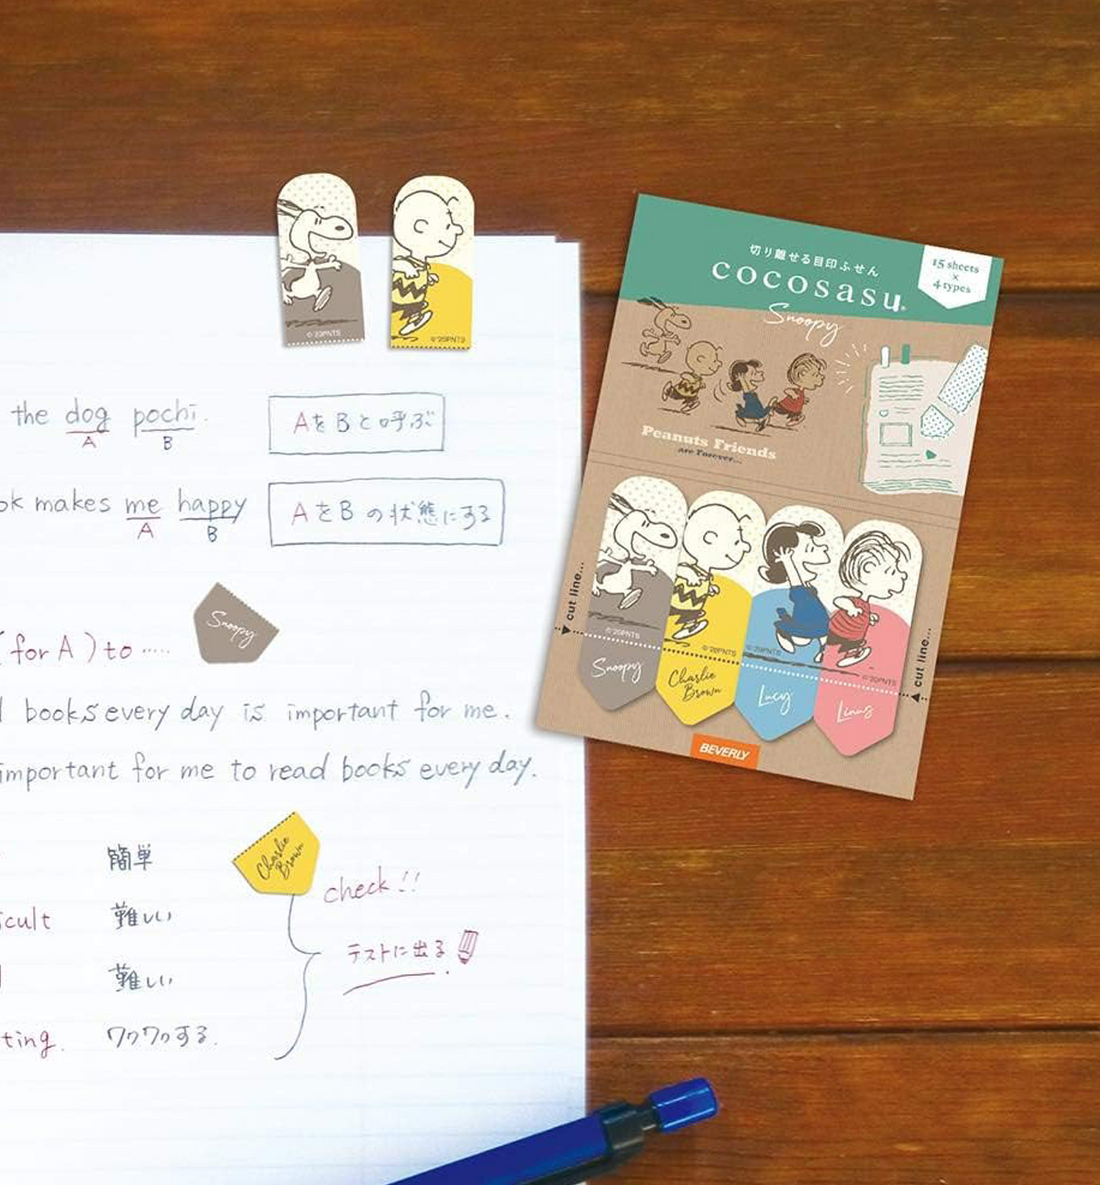 ©'20PNTS
©'20PNTS
the dog pochi.
A
B
AをBと呼ぶ
ok makes me happy
A
B
AをBの状態にする
Snoopy
(for A) to ·····
books every day is important for me.
important for me to read books every day.
簡単
icult
難しい
難しい
ting.
ワクワクする.
Charlie
Brown
check!!
テストに出る
切り離せる目印ふせん
cocosasu®
Snoopy
15 sheets
×
4 types
Peanuts Friends
are Forever...
cut line...
©'20PNTS
©'20PNTS
©'20PNTS
©'20PNTS
Snoopy
Charlie
Brown
Lucy
Linus
cut line...
BEVERLY